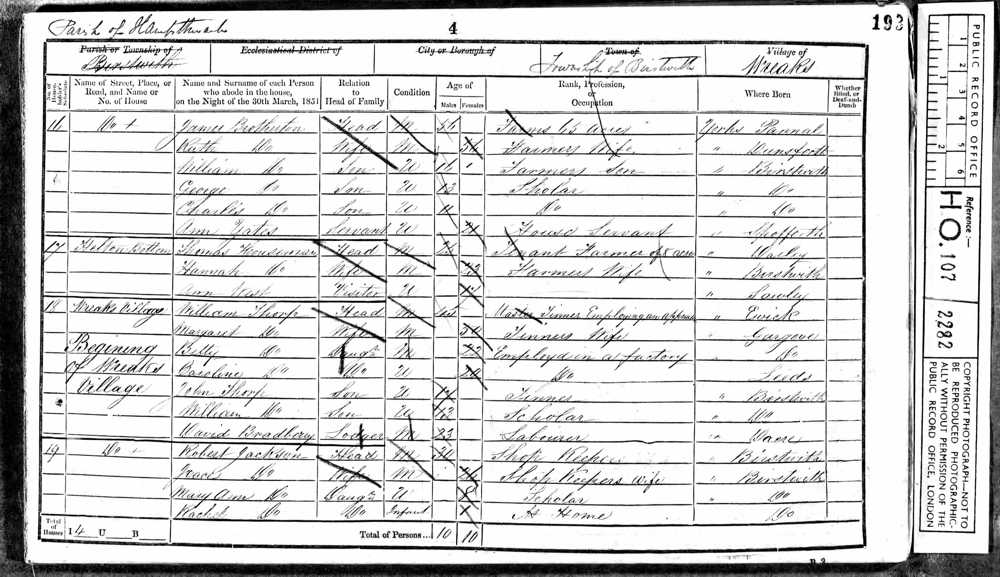 Parish of Hampsthwaite
4
193
Parish or Township of
Ecclesiastical District of
City or Borough of
Town of
Village of
Birstwith
Township of Birstwith
Wreaks
No. of House-holder's Schedule
Name of Street, Place, or Road, and Name or No. of House
Name and Surname of each Person who abode in the house, on the Night of the 30th March, 1851
Relation to Head of Family
Condition
Age of
Males
Females
Rank, Profession, or Occupation
Where Born
Whether Blind, or Deaf-and-Dumb
16 Do James Brotherton Head M 56 Farms 65 acres Yorks Pannal
Ruth Do Wife M Farmers Wife " Dunsforth
William Do Son U 16 Farmers Son " Birstwith
George Do Son U 13 Scholar " Do
Charles Do Son U 11 Do " Do
Ann Yates Servant U House Servant " Spofforth
17 Bottom Thomas Houseman Head M Farmer of acres "
Hannah Do Wife M Farmers Wife " Birstwith
Ann West Visitor U " Sawley
18 Wreaks Village William Thorp Head M Master Tinner Employing an apprentice "
Margaret Do Wife M 50 Tinners Wife " Gargove
Begining of Wreaks Village
Betty Do Daugr 22 Employd in a factory " Do
Caroline Do Do 20 Do Leeds
John Thorp Son U 14 Tinner " Birstwith
William Do Son U 12 Scholar " Do
David Bradbery Lodger M 23 Labourer " Dacre
19 Do Robert Jackson Head M 30 Shop Keeper " Birstwith
Grace Do Wife M Shop Keepers wife " Birstwith
Mary Ann Do Daugr U Scholar " Do
Rachel Do Do Infant At Home Do
Total of Houses
14 U B
Total of Persons... 10 10
PUBLIC RECORD OFFICE
1 2 3 4 5 6
1 2
Reference:-
HO. 107
2282
COPYRIGHT PHOTOGRAPH—NOT TO BE REPRODUCED PHOTOGRAPHIC-ALLY WITHOUT PERMISSION OF THE PUBLIC RECORD OFFICE, LONDON